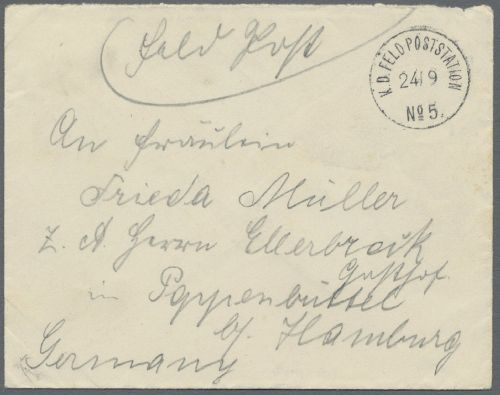 Feld Post
K. D. FELD-POSTSTATION
24/9
No 5.
An Fräulein
Frieda Müller
z. A. Herrn Ellerbrock
Gasthof
in Poppenbüttel
b/ Hamburg
Germany